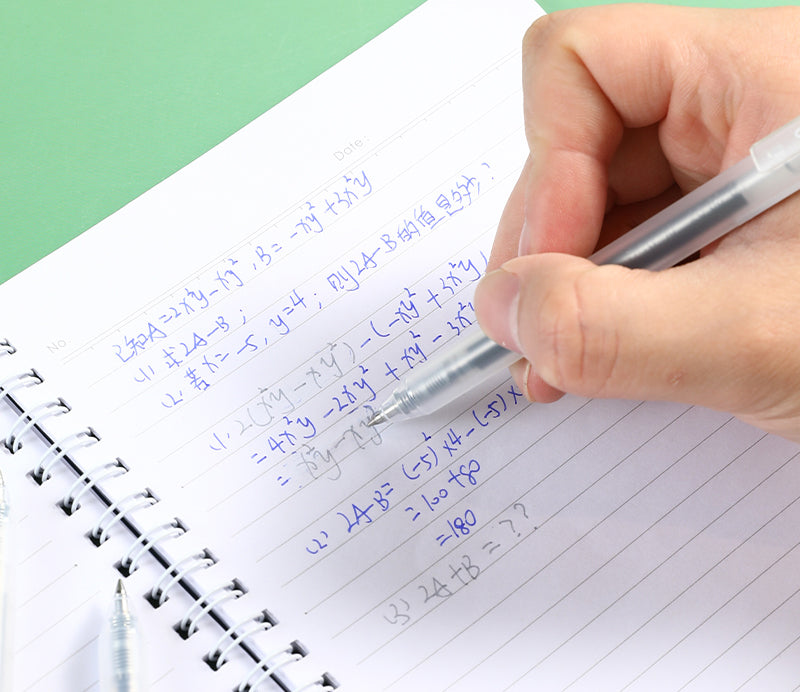 Date:
No.
已知A=2x²y-xy², B=-xy²+3x²y
(1) 求2A-B;
(2) 若x=-5, y=4; 则2A-B的值是
(1) 2(x²y-xy²)-(-xy²+3x²y)
=4x²y-2xy²+xy²-3x²
=x²y-xy²
(2) 2A-B=(-5)²×4-(-5)×
=100+80
=180
(3) 2A+B=??